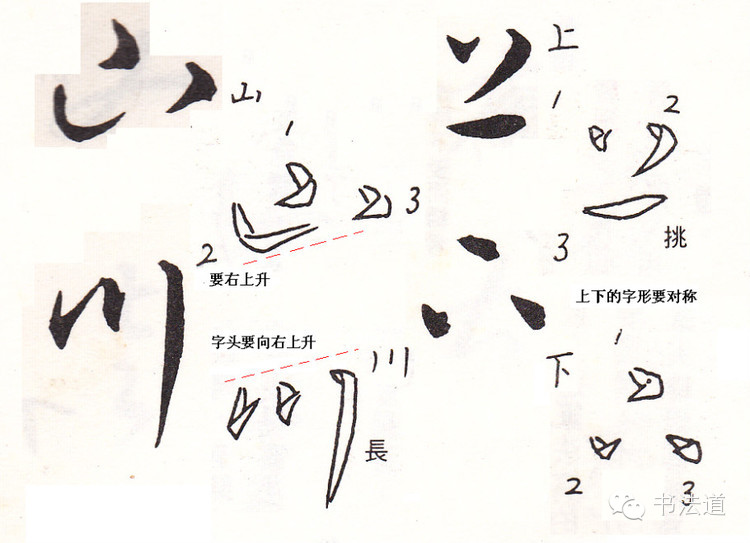 山
山
1
2
3
要右上升
上
上
1
2
3
挑
上下的字形要对称
川
字头要向右上升
川
長
下
下
1
2
3
书法道